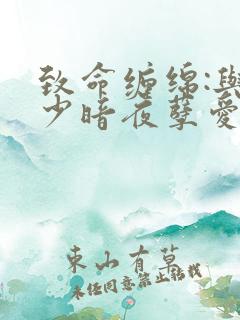 致命缠绵:与
少暗夜孽爱
东山有草
未经同意禁止转载